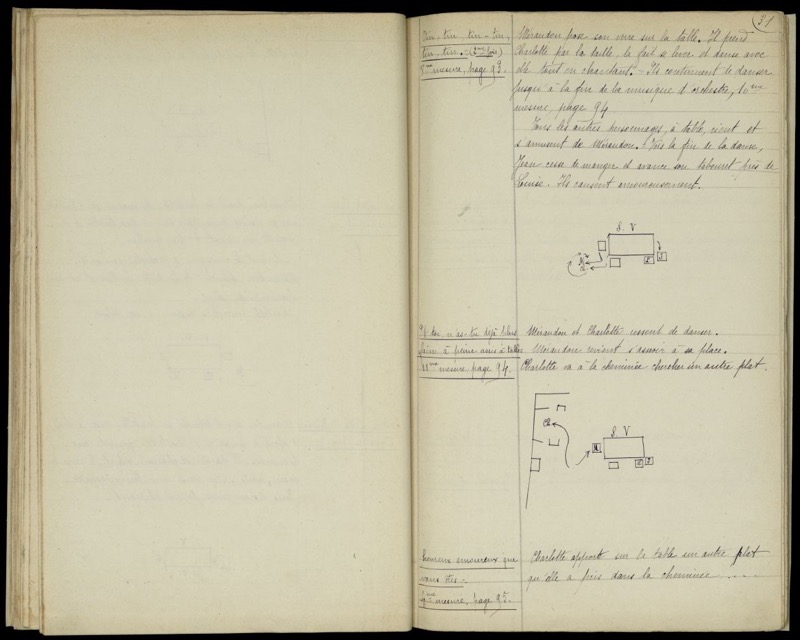 31
Tin, tin, tin, tin,
tin, tin. (2me fois)
8me mesure, page 93.
Mirandon pose son verre sur la table. Il prend
Charlotte par la taille, la fait se lever et danse avec
elle tout en chantant. Ils continuent de danser
jusqu'à la fin de la musique d'orchestre, 10me
mesure, page 94
Tous les autres personnages, à table, rient et
s'amusent de Mirandon. Vers la fin de la danse,
Jean cesse de manger et avance son tabouret près de
Louise. Ils causent amoureusement.
S. V
L J
n'as-tu déjà plus
faim à peine mis à table
11me mesure, page 94.
Mirandon et Charlotte cessent de danser.
Mirandon revient s'asseoir à sa place.
Charlotte va à la cheminée chercher un autre plat.
Ch
S. V
M
L J
heureux amoureux que
vous êtes.
mesure, page 95.
Charlotte apporte sur la table un autre plat
qu'elle a pris dans la cheminée ....